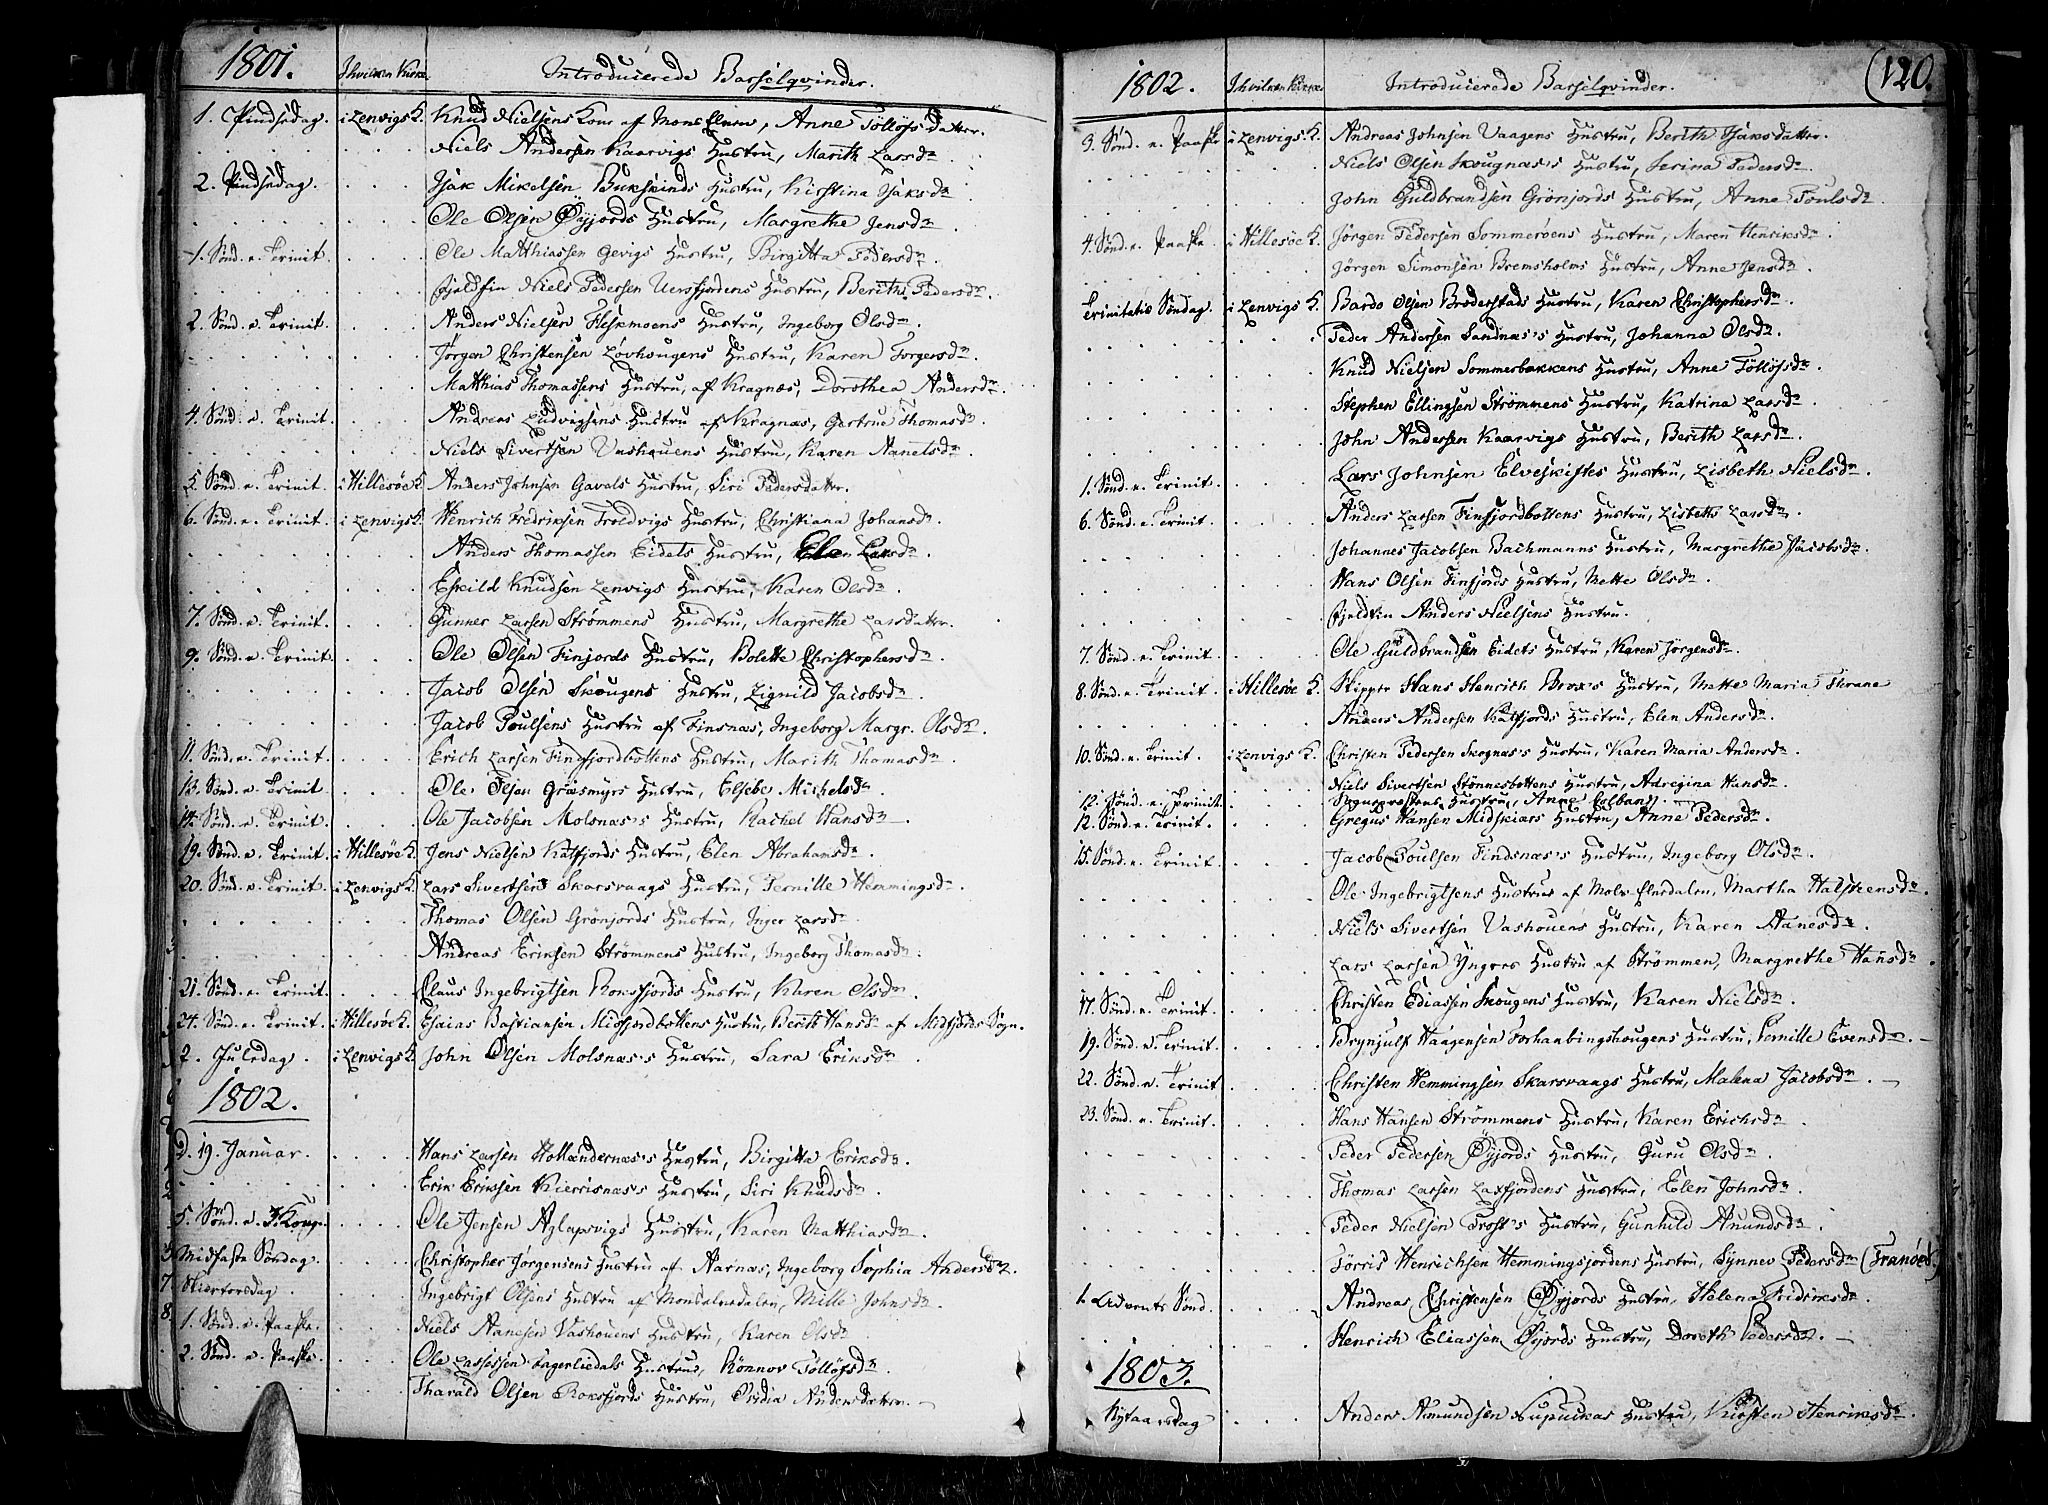 1801. I hvilken Kirke. Introducierede Barselqvinder.
1. Pindsedag. i Lenvigs K. Knud Nielsens Kone af Mons Elven, Anne Tolløfs datter.
Niels Andersen Kaarvigs Hustru, Marith Larsdr.
2. Pindsedag. Isak Mikelsen Bukskinds Hustru, Kirstina Isaksdr
Ole Olsen Øyjords Hustru, Margrethe Jensdr.
1. Sønd. e. Trinit. Ole Matthiassen Gevigs Hustru, Birgitta Pedersdr
Fjeldfin Niels Pedersen Uersfjordens Hustru, Berith Pedersdr.
2. Sønd. e. Trinit. Anders Nielsen Fleskmoens Hustru, Ingeborg Olsdr.
Jørgen Christensen Løvhougens Hustru, Karen Torgersdr.
Matthias Thomassens Hustru, af Kragnæs, Dorothea Andersdr.
4. Sønd. e. Trinit. Andreas Ludvigsens Hustru af Kragnæs, Gertrue Thomasdr.
Niels Sivertsen Vashouens Hustru, Karen Aanetsdr.
5. Sønd. e. Trinit i Hillesøe K. Anders Johnsen Gavals Hustru, Siri Pedersdatter.
6. Sønd. e. Trinit i Lenvigs K. Henrich Fredriksen Troldvigs Hustru, Christiana Johansdr.
Anders Thomassen Eidets Hustru, Elen Larsdr.
Eskild Knudsen Lenvigs Hustru, Karen Olsdr.
7. Sønd. e. Trinit. Gunner Larsen Strømmens Hustru, Margrethe Larsdatter.
9. Sønd. e. Trinit Ole Olsen Finjords Hustru, Bolette Christophersdr.
Jacob Olsen Skougens Hustru, Zignild Jacobsdr.
Jacob Poulsens Hustru af Finsnæs, Ingeborg Margr. Olsdr.
11. Sønd. e. Trinit. Erich Larsen Finfjordbottens Hustru, Marith Thomasdr.
13. Sønd. e. Trinit Ole Olsen Græsmyrs Hustru, Elsebe Michelsdr.
14. Sønd. e. Trinit. Ole Jacobsen Molsnæs's Hustru, Rachel Hansdr.
19. Sønd. e. Trinit i Hillesøe K. Jens Nielsen Katfjords Hustru, Elen Abrahamsdr.
20. Sønd. e. Trinit. i Lenvigs K. Lars Sivertsens Skarsvaags Hustru, Pernille Hemmingsdr.
Thomas Olsen Grønjords Hustru, Inger Larsdr.
Andreas Eriksen Strømmens Hustru, Ingeborg Thomasdr.
21. Sønd. e. Trinit. Claus Ingebrigtsen Roksfjords Hustru, Karen Olsdr.
24. Sønd. e. Trinit. i Hillesøe K. Esaias Bastiansen Midfjordbottens Hustru, Berith Hansdr af Midfjords Sogn.
2. Juledag. i Lenvigs K. John Olsen Molsnæs's Hustru, Sara Eriksdr.
1802.
D. 19. Januar. Hans Larsen Hollændernæs's Hustru, Birgitta Eriksdr.
Erik Eriksen Kierrisnæs's Hustru, Siri Knudsdr.
5. Sønd. e. 3. Kong. Ole Jensen Aglapsvigs Hustru, Karen Matthiasdr.
Midfaste Søndag. Christopher Jørgensens Hustru af Aarnæs, Ingeborg Sophia Andersdr.
Skiertorsdag. Ingebrigt Olsens Hustru af Monselvedalen, Mille Johnsdr.
1. Sønd. e. Paaske. Niels Aanesen Vashouens Hustru, Karen Olsdr
2. Sønd. e. Paaske. Ole Lassesen Fagerliedals Hustrue, Rønnov Tolløfsdr
Tharald Olsen Roksfjords Hustru, Andersdatter.
1802. I hvilken Kirke Introducierede Barselqvinder. 120.
3. Sønd. e. Paaske i Lenvigs K. Andreas Johnsen Vaagens Hustru, Berith Isaksdatter.
Niels Olsen Skougnæs's Hustru, Serina Pedersdr.
John Guldbrandsen Grønjords Hustru, Anne Poulsdr
4. Sønd. e. Paaske. i Hillesøe K. Jørgen Pedersen Sommerøens Hustru, Maren Henriksdr.
Jørgen Simonsen Bremsholms Hustru, Anne Jensdr.
Trinitatis Søndag. i Lenvigs K. Bardo Olsen Broderstads Hustru, Karen Christophersdr.
Peder Andersen Sandnæs's Hustru, Johanna Olsdr.
Knud Nielsen Sommerbakkens Hustru, Anne Tolløfsdr.
Stephen Ellingsen Strømmens Hustru, Katrina Larsdr.
John Andersen Kaarvigs Hustru, Berith Larsdr.
1. Sønd. e. Trinit. Lars Johnsen Elveskiftes Hustru, Lisbeth Nielsdr.
6. Sønd. e. Trinit. Anders Larsen Finfjordbottens Hustru, Lisbeth Larsdr.
Johannes Jacobsen Bachmanns Hustru, Margrethe Jacobsdr.
Hans Olsen Finfjords Hustru, Mette Olsdr.
Fjeldfin Anders Nielsens Hustru.
7. Sønd. e. Trinit. Ole Guldbrandsen Eidets Hustru, Karen Jørgensdr.
8. Sønd. e. Trinit. i Hillesøe K. Skipper Hans Henrich Brox's Hustru, Mette Maria Thrane
Anders Andersen Katfjords Hustru, Elen Andersdr.
10. Sønd. e. Trinit. i Lenvigs K. Christen Pedersen Skognæs's Hustru, Karen Maria Andersdr.
Niels Sivertsen Stønnesbottens Hustru, Adregina Hansdr.
12. Sønd. e. Trinit. Sogneprestens Hustru, Anne Colban.
12. Sønd. e. Trinit. Gregus Hansen Midskiærs Hustru, Anne Pedersdr.
15. Sønd. e. Trinit Jacob Poulsen Findsnæs's Hustru, Ingeborg Olsdr.
Ole Ingebrigtsens Hustrue af Mols Elvedalen, Martha Halsteensdr.
Niels Sivertsen Vashouens Hustru, Karen Aanesdr.
Lars Larsen Yngres Hustru af Strømmen, Margrethe Hansdr.
17. Sønd. e. Trinit. Christen Ediassen Skougens Hustru, Karen Nielsdr.
19. Sønd. e. Trinit. Brynjulf Haagensen Forhanbingshougens Hustru, Pernille Evensdr.
22. Sønd. e. Trinit Christen Hemmingsen Skarsvaags Hustru, Malena Jacobsdr.
23. Sønd. e. Trinit. Hans Hansen Strømmens Hustru, Karen Erichsdr.
Peder Pedersen Øyjords Hustru, Guru Olsdr.
Thomas Larsen Laxfjordens Hustru, Elen Johnsdr.
Peder Nielsen Frost's Hustru, Gunhild Amundsdr.
Tørris Henrichsen Hemmingsjordens Hustru, Synnev Pedersdr (Tranøe)
1. Advents Sønd. Andreas Christensen Øyjords Hustru, Helena Fridriksdr.
Henrich Eliassen Øyjords Hustru, Doroth Pedersdr.
1803.
Nytaarsdag Anders Amundsen Hustru, Kirsten Henriksdr.